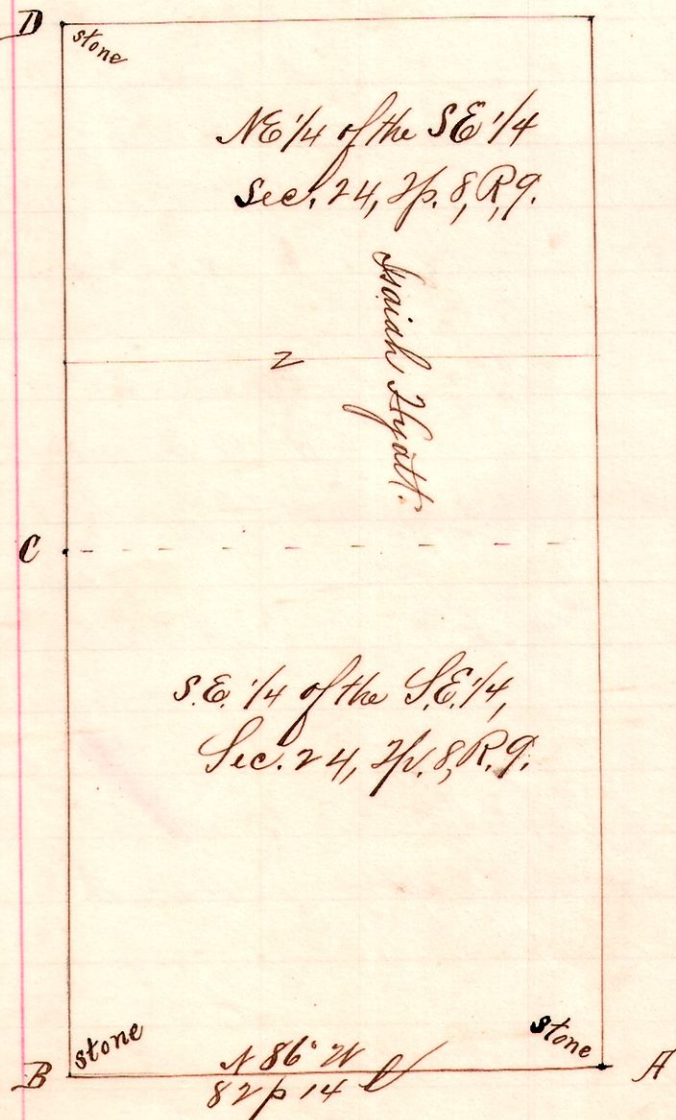 D
stone
NE 1/4 of the SE 1/4
Sec. 24, Tp. 8, R, 9.
Isaiah Hyatt.
N
C
S.E. 1/4 of the S.E. 1/4,
Sec. 24, Tp. 8, R. 9.
stone
stone
B
N 86° W
A
82 p 14 l